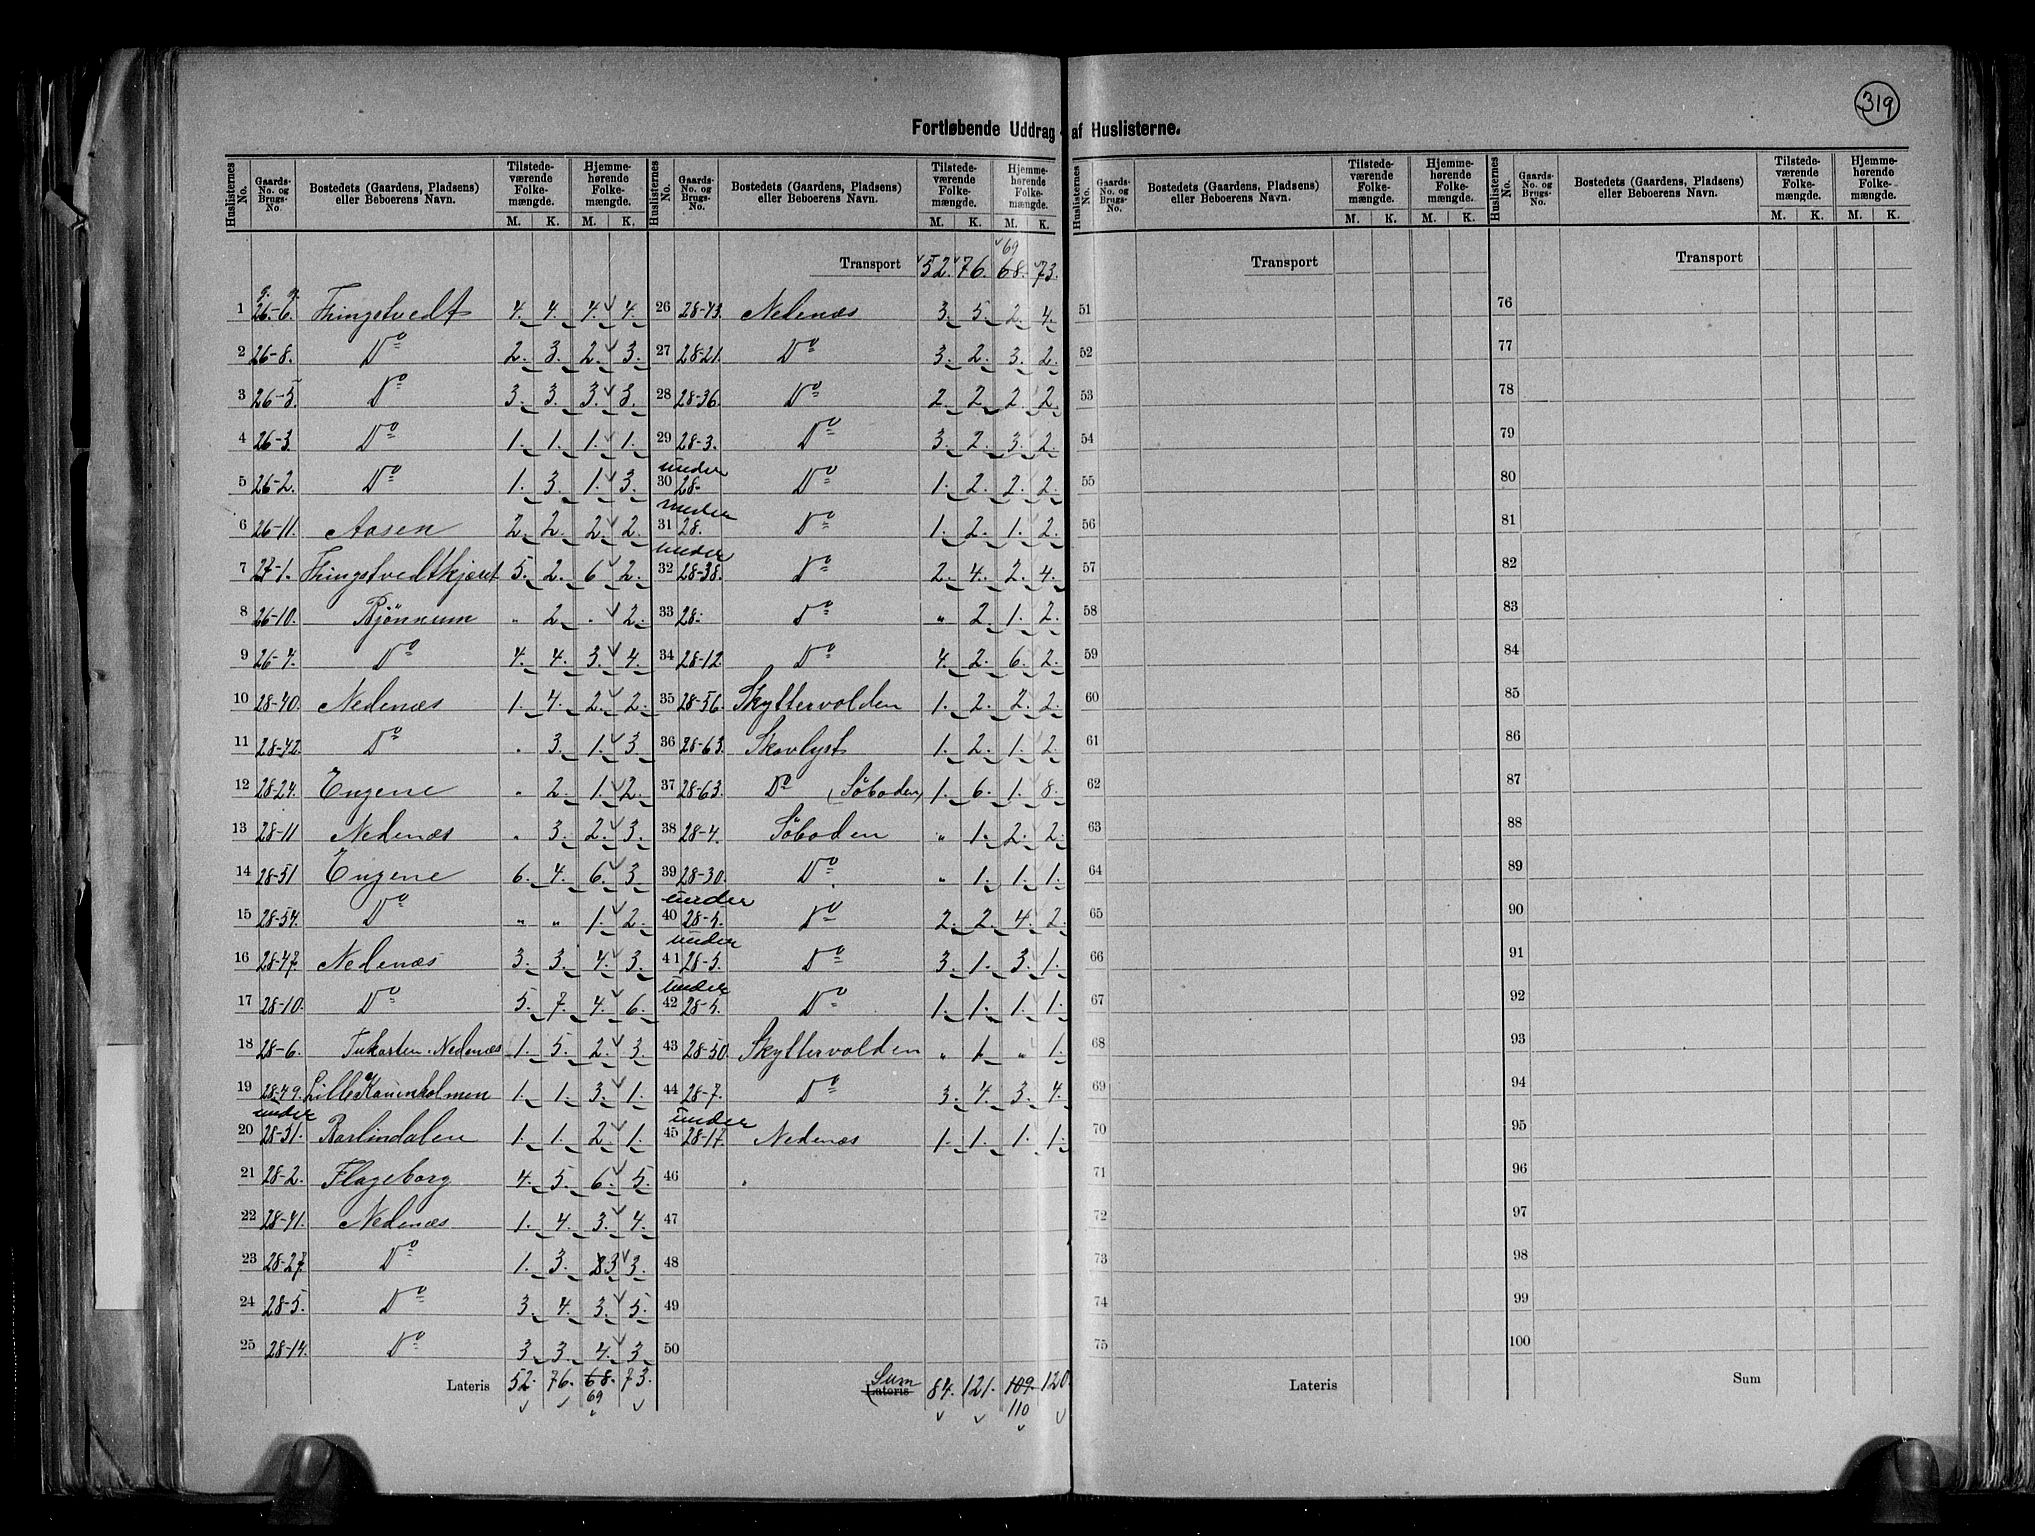 319
Fortløbende Uddrag af Huslisterne.
Huslisternes No. | Gaards-No. og Brugs-No. | Bostedets (Gaardens, Pladsens) eller Beboerens Navn. | Tilstedeværende Folkemængde. M. K. | Hjemmehørende Folkemængde. M. K.
1 26-6. Fringstvedt 4. 4. 4. 4.
2 26-8. Do 2. 3. 2. 3.
3 26-5. Do 3. 3. 3. 3.
4 26-3. Do 1. 1. 1. 1.
5 26-2. Do 1. 3. 1. 3.
6 26-11. Aasen 2. 2. 2. 2.
7 27-1. Fringstvedtkjæret 5. 2. 6. 2.
8 26-10. Bjønnum " 2. " 2.
9 26-4. Do 4. 4. 3. 4.
10 28-40. Nedenæs 1. 4. 2. 2.
11 28-42. Do " 3. 1. 3.
12 28-24. Engene " 2. 1. 2.
13 28-11 Nedenæs " 3. 2. 3.
14 28-51 Engene 6. 4. 6. 3.
15 28-54. Do " " 1. 2.
16 28-47. Nedenæs 3. 3. 4. 3.
17 28-10. Do 5. 7. 4. 6.
18 28-6. Nedenæs 1. 5. 2. 3.
19 28-49. Lille 1. 1. 3. 1.
20 under 28-31. Barlindalen 1. 1. 2. 1.
21 28-2. Flageborg 4. 5. 6. 5.
22 28-41. Nedenæs 1. 4. 3. 4.
23 28-27. Do 1. 3. 3 3.
24 28-5. Do 3. 4. 3. 5.
25 28-14. Do 3. 3. 4. 3.
Lateris 52. 76. 68. 73.
69
Huslisternes No. | Gaards-No. og Brugs-No. | Bostedets (Gaardens, Pladsens) eller Beboerens Navn. | Tilstedeværende Folkemængde. M. K. | Hjemmehørende Folkemængde. M. K.
69
Transport 52. 76. 68. 73.
26 28-43. Nedenæs 3. 5. 2. 4.
27 28-21. Do 3. 2. 3. 2.
28 28-36. Do 2. 2. 2. 2.
29 28-3. Do 3. 2. 3. 2.
30 under 28- Do 1. 2. 2. 2.
31 under 28. Do 1. 2. 1. 2.
32 under 28-38. Do 2. 4. 2. 4.
33 28- Do " 2. 1. 2.
34 28-12. Do 4. 2. 6. 2.
35 28-56. Skyttervolden 1. 2. 2. 2.
36 28-63. Skovlyst 1. 2. 1. 2.
37 28-63. Do (Søboden) 1. 6. 1. 8.
38 28-4. Søboden " 1. 2. 2.
39 28-30. Do " 1. 1. 1.
40 under 28-5. Do 2. 2. 4. 2.
41 under 28-5. Do 3. 1. 3. 1.
42 under 28-5. Do 1. 1. 1. 1.
43 28-50. Skyttervolden " 1. " 1.
44 28-7. Do 3. 4. 3. 4.
45 under 28-17. Nedenæs 1. 1. 1. 1.
46
47
48
49
50
Sum
Lateris 84. 121. 109. 120.
110
Huslisternes No. | Gaards-No. og Brugs-No. | Bostedets (Gaardens, Pladsens) eller Beboerens Navn. | Tilstedeværende Folkemængde. M. K. | Hjemmehørende Folkemængde. M. K.
Transport
51
52
53
54
55
56
57
58
59
60
61
62
63
64
65
66
67
68
69
70
71
72
73
74
75
Lateris
Huslisternes No. | Gaards-No. og Brugs-No. | Bostedets (Gaardens, Pladsens) eller Beboerens Navn. | Tilstedeværende Folkemængde. M. K. | Hjemmehørende Folkemængde. M. K.
Transport
76
77
78
79
80
81
82
83
84
85
86
87
88
89
90
91
92
93
94
95
96
97
98
99
100
Sum